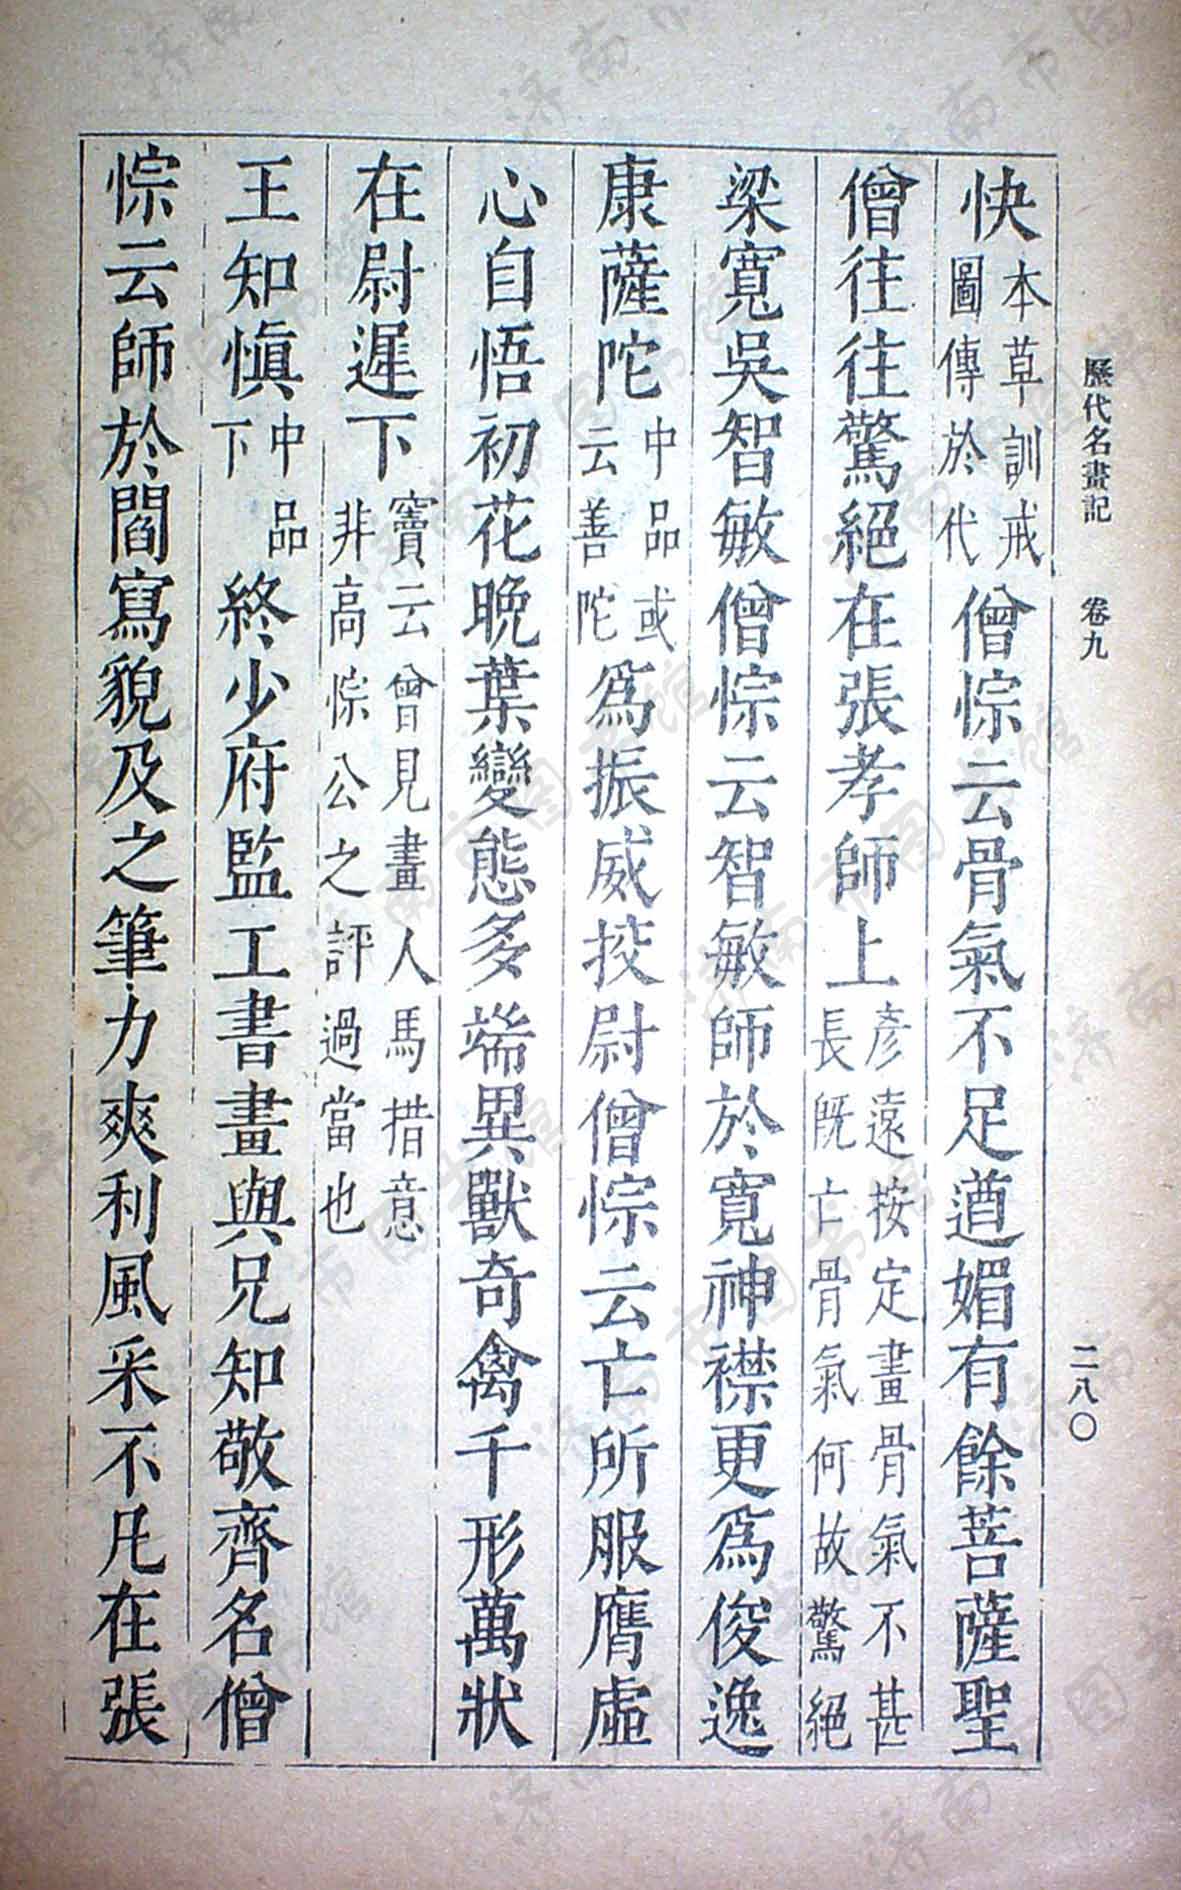 歷代名畫記 卷九 二八〇
快本草訓戒圖傳於代僧悰云骨氣不足遒媚有餘菩薩聖
僧往往驚絕在張孝師上彥遠按定畫骨氣不甚長既亡骨氣何故驚絕
梁寬吳智敏僧悰云智敏師於寬神襟更爲俊逸
康薩陀中品或云善陀爲振威挍尉僧悰云亡所服膺虛
心自悟初花晚葉變態多端異獸奇禽千形萬狀
在尉遲下竇云曾見畫人馬措意非高悰公之評過當也
王知慎中品下終少府監工書畫與兄知敬齊名僧
悰云師於閻寫貌及之筆力爽利風采不凡在張
济南市图书馆